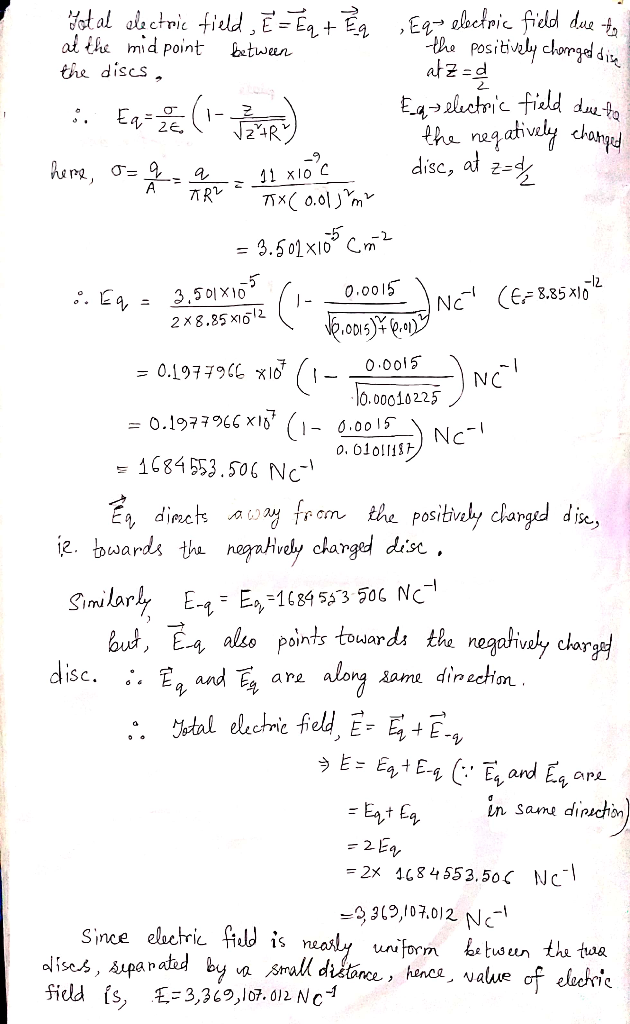 Total electric field, E⃗ = E⃗q + E⃗q , Eq → electric field due to
at the mid point between the positively charged disc
the discs, at Z = d/2
∴ Eq = σ/2ε₀ (1 - z/√(z²+R²)) E-q → electric field due to
the negatively charged
disc, at z = d/2
here, σ = q/A = q/πR² = 11 x10⁻⁹ C / π×(0.01)² m²
= 3.501×10⁻⁵ C m⁻²
∴ Eq = 3.501×10⁻⁵ / 2×8.85×10⁻¹² (1 - 0.0015/√((0.0015)²+(0.01)²)) NC⁻¹ (ε₀=8.85×10⁻¹²
= 0.1977966 ×10⁷ (1 - 0.0015/√0.00010225) NC⁻¹
= 0.1977966×10⁷ (1 - 0.0015/0.01011187) NC⁻¹
= 1684553.506 NC⁻¹
E⃗q directs away from the positively charged disc,
ie. towards the negatively charged disc.
Similarly, E-q = Eq = 1684553.506 NC⁻¹
but, E⃗-q also points towards the negatively charged
disc. ∴ E⃗q and E⃗q are along same direction.
∴ Total electric field, E⃗ = E⃗q + E⃗-q
⇒ E = Eq + E-q (∵ E⃗q and E⃗q are
= Eq + Eq in same direction)
= 2Eq
= 2× 1684553.506 NC⁻¹
= 3,369,107.012 NC⁻¹
Since electric field is nearly uniform between the two
discs, separated by a small distance, hence, value of electric
field is, E = 3,369,107.012 NC⁻¹